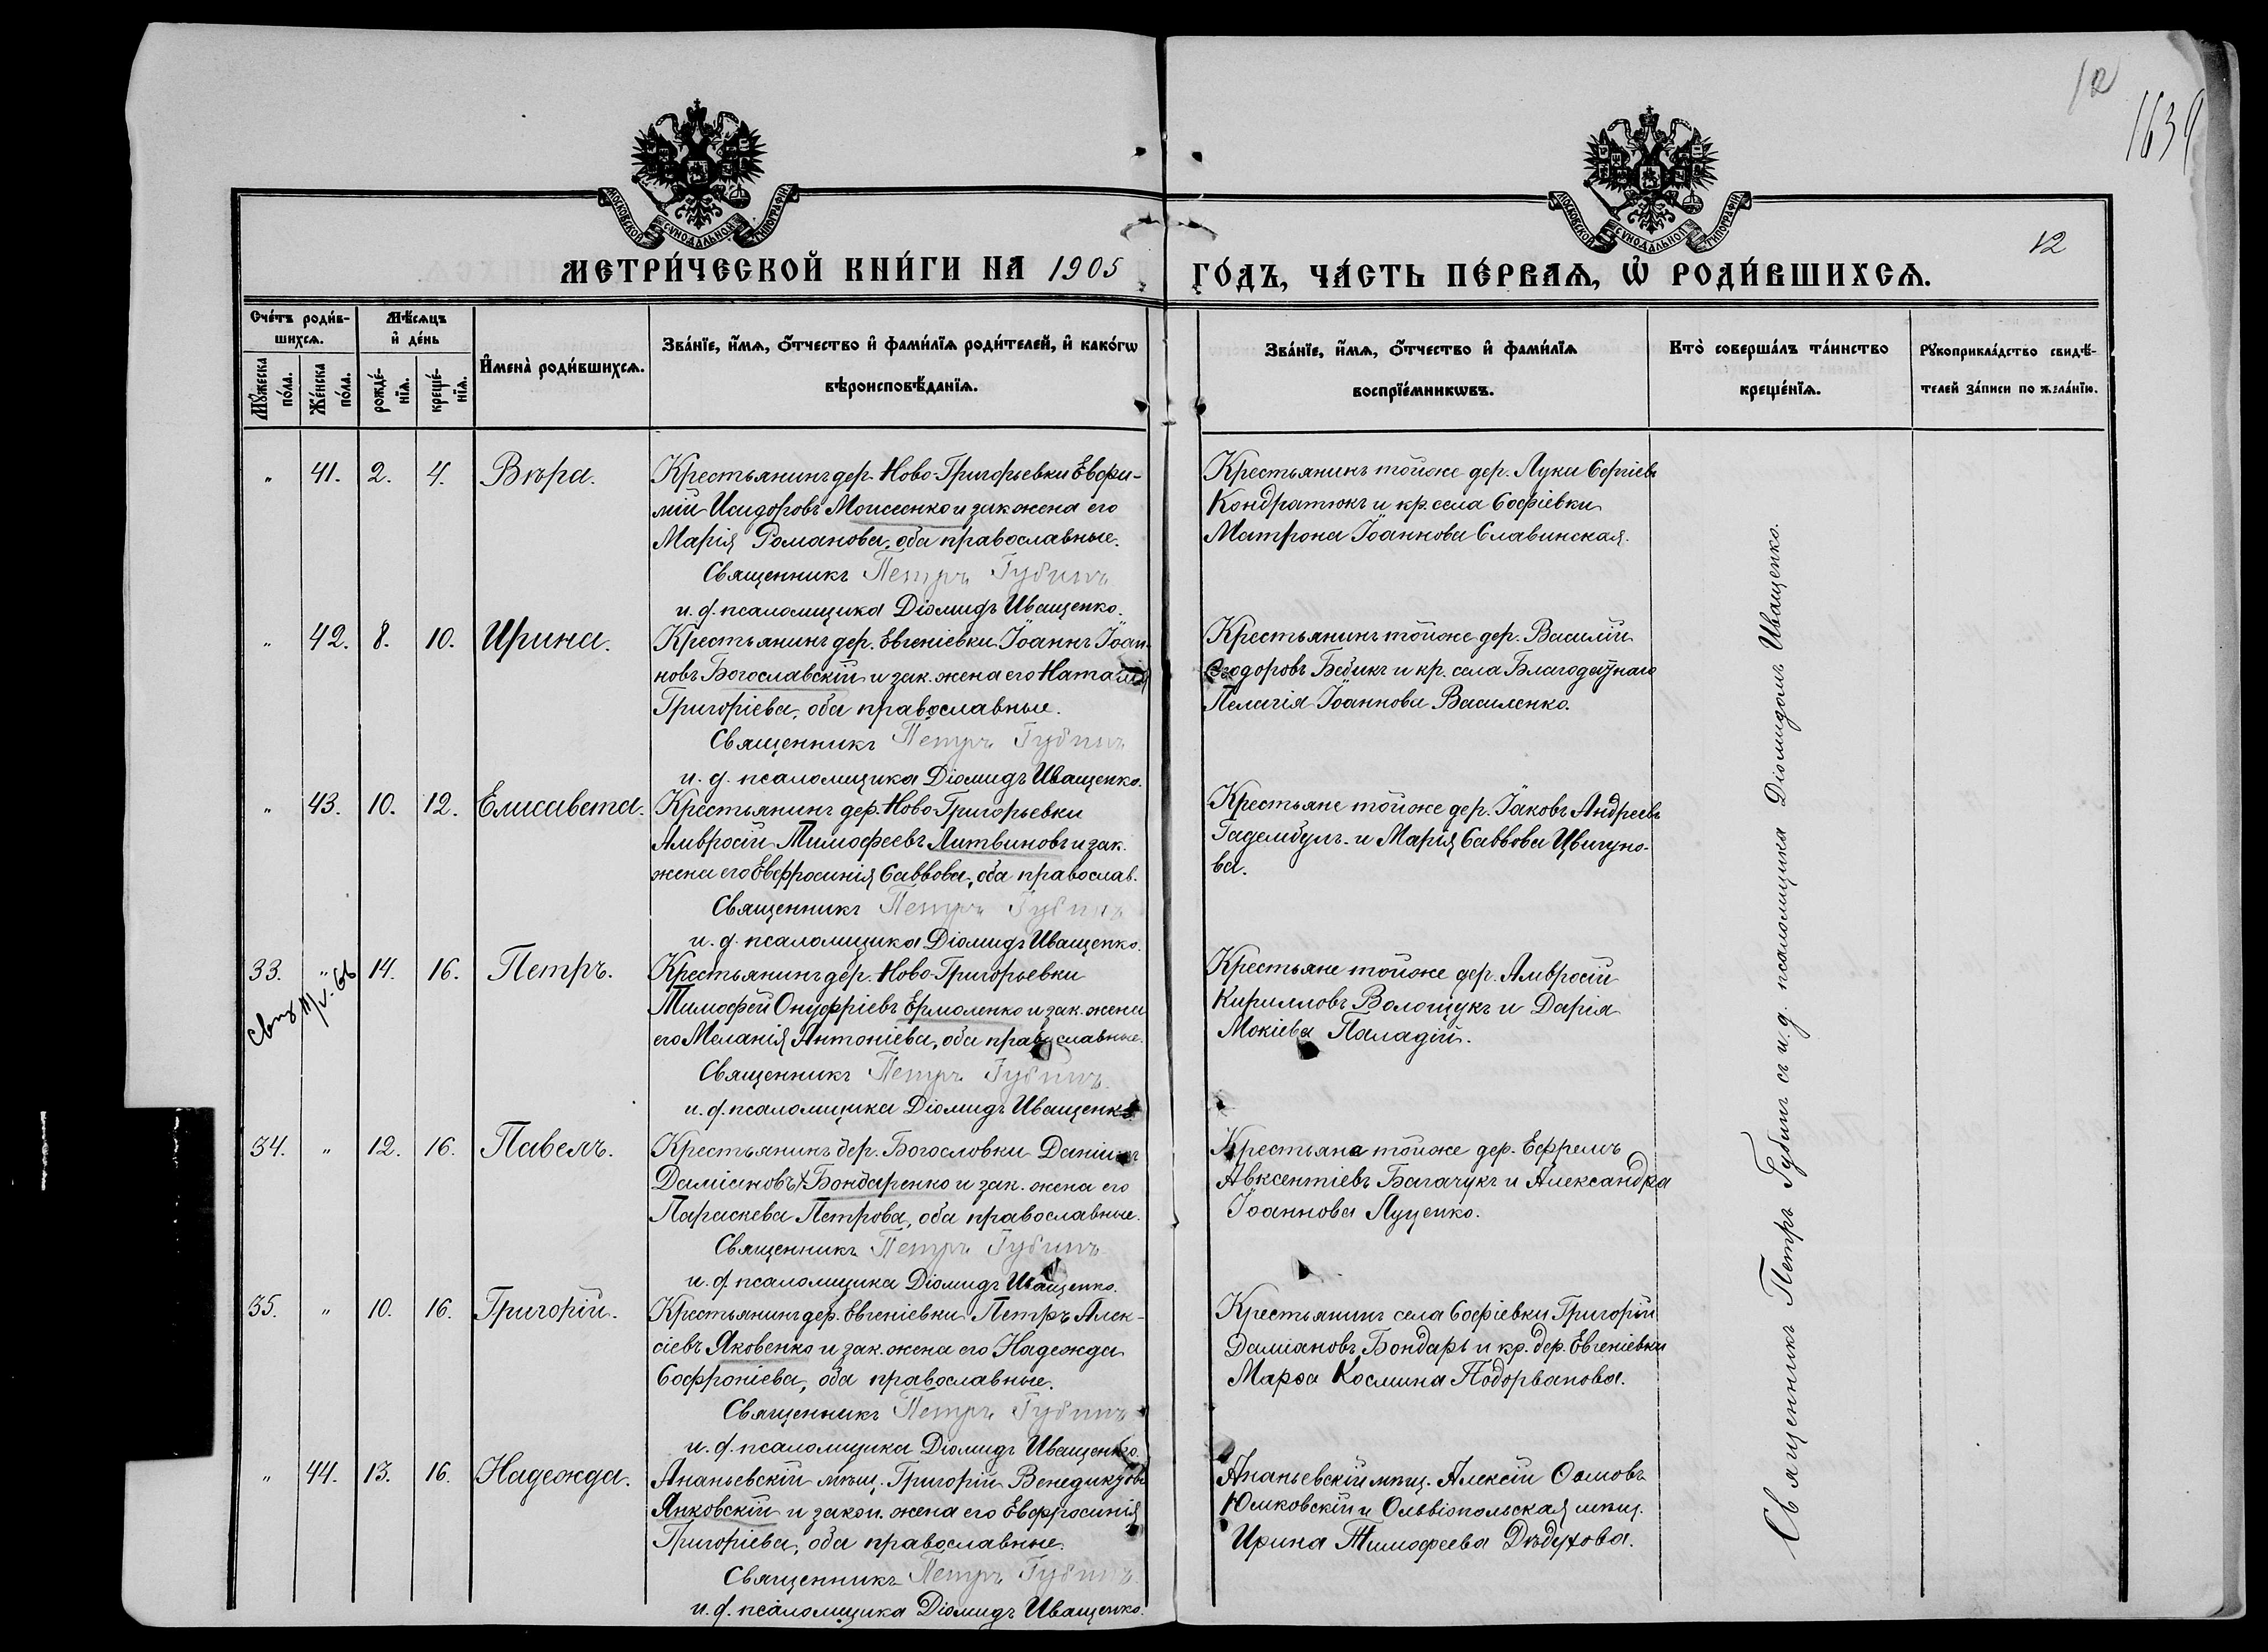 12
1639
МОСКОВСКОЙ СѴНОДАЛЬНОЙ ТИПОГРАФІИ
МОСКОВСКОЙ СѴНОДАЛЬНОЙ ТИПОГРАФІИ
12
МЕТРИ́ЧЕСКОЙ КНИ́ГИ НА 1905 ГО́ДЪ, ЧА́СТЬ ПЕ́РВАѦ, Ѡ҆ РОДИ́ВШИХСѦ.
Сче́тъ роди́в-
шихсѧ.
Мꙋ́жеска по́ла.
Же́нска по́ла.
Мѣ́сѧцъ и҆ де́нь
рожде́-нїѧ.
креще́-нїѧ.
И҆мена̀ роди́вшихсѧ.
Зва́нїе, и҆́мѧ, ѻ҆́тчество и҆ фами́лїѧ роди́телей, и҆ како́гѡ
вѣроисповѣ́данїѧ.
Зва́нїе, и҆́мѧ, ѻ҆́тчество и҆ фами́лїѧ
воспрїе́мникѡвъ.
Кто̀ соверша́лъ та́инство
креще́нїѧ.
Рꙋкоприкла́дство свидѣ́-
телей за́писи по жела́нїю.
" 41. 2. 4. Вѣра. Крестьянинъ дер. Ново-Григорьевки Евфи-
мій Исидоровъ Моисеенко и зак. жена его
Марія Романова, оба православные.
Священникъ Петръ Губинъ
и. д. псаломщика Діомидъ Иващенко.
Крестьянинъ тойже дер. Луки Сергіевъ
Кондратюкъ и кр. села Софіевки
Матрона Іоаннова Славинская.
" 42. 8. 10. Ирина. Крестьянинъ дер. Евгеніевки Іоаннъ Іоан-
новъ Богославскій и зак. жена его Наталія
Григоріева, оба православные.
Священникъ Петръ Губинъ
и. д. псаломщика Діомидъ Иващенко.
Крестьянинъ тойже дер. Василій
Ѳеодоровъ Бебикъ и кр. села Благодатнаго
Пелагія Іоаннова Василенко.
" 43. 10. 12. Елисавета. Крестьянинъ дер. Ново-Григорьевки
Амвросій Тимофеевъ Литвиновъ и зак.
жена его Евфросинія Саввова, оба православ.
Священникъ Петръ Губинъ
и. д. псаломщика Діомидъ Иващенко.
Крестьяне тойже дер. Іаковъ Андреевъ
Гадембулъ и Марія Саввова Цвигуно-
ва.
33. " 14. 16. Петръ. Крестьянинъ дер. Ново-Григорьевки
Тимофей Онуфріевъ Ермоленко и зак. жена
его Меланія Антоніева, оба православные.
Священникъ Петръ Губинъ
и. д. псаломщика Діомидъ Иващенко
Крестьяне тойже дер. Амвросій
Кирилловъ Волощукъ и Дарія
Мокіева Паладій.
34. " 12. 16. Павелъ. Крестьянинъ дер. Богословки Даніилъ
Даміановъ Бондаренко и зак. жена его
Параскева Петрова, оба православные.
Священникъ Петръ Губинъ
и. д. псаломщика Діомидъ Иващенко.
Крестьяне тойже дер. Ефремъ
Авксентіевъ Багачукъ и Александра
Іоаннова Луценко.
35. " 10. 16. Григорій. Крестьянинъ дер. Евгеніевки Петръ Алек-
сіевъ Яковенко и зак. жена его Надежда
Софроніева, оба православные.
Священникъ Петръ Губинъ
и. д. псаломщика Діомидъ Иващенко.
Крестьянинъ села Софіевки Григорій
Даміановъ Бондарь и кр. дер. Евгеніевки
Марѳа Космина Подорванова.
" 44. 13. 16. Надежда. Ананьевскій мѣщ. Григорій Венедиктовъ
Янковскій и закон. жена его Евфросинія
Григоріева, оба православные.
Священникъ Петръ Губинъ
и. д. псаломщика Діомидъ Иващенко.
Ананьевскій мѣщ. Алексій Ѳомовъ
Юшковскій и Ольвіопольская мѣщ.
Ирина Тимофеева Дѣдухова.
Священникъ Петръ Губинъ съ и. д. псаломщика Діомидомъ Иващенко.